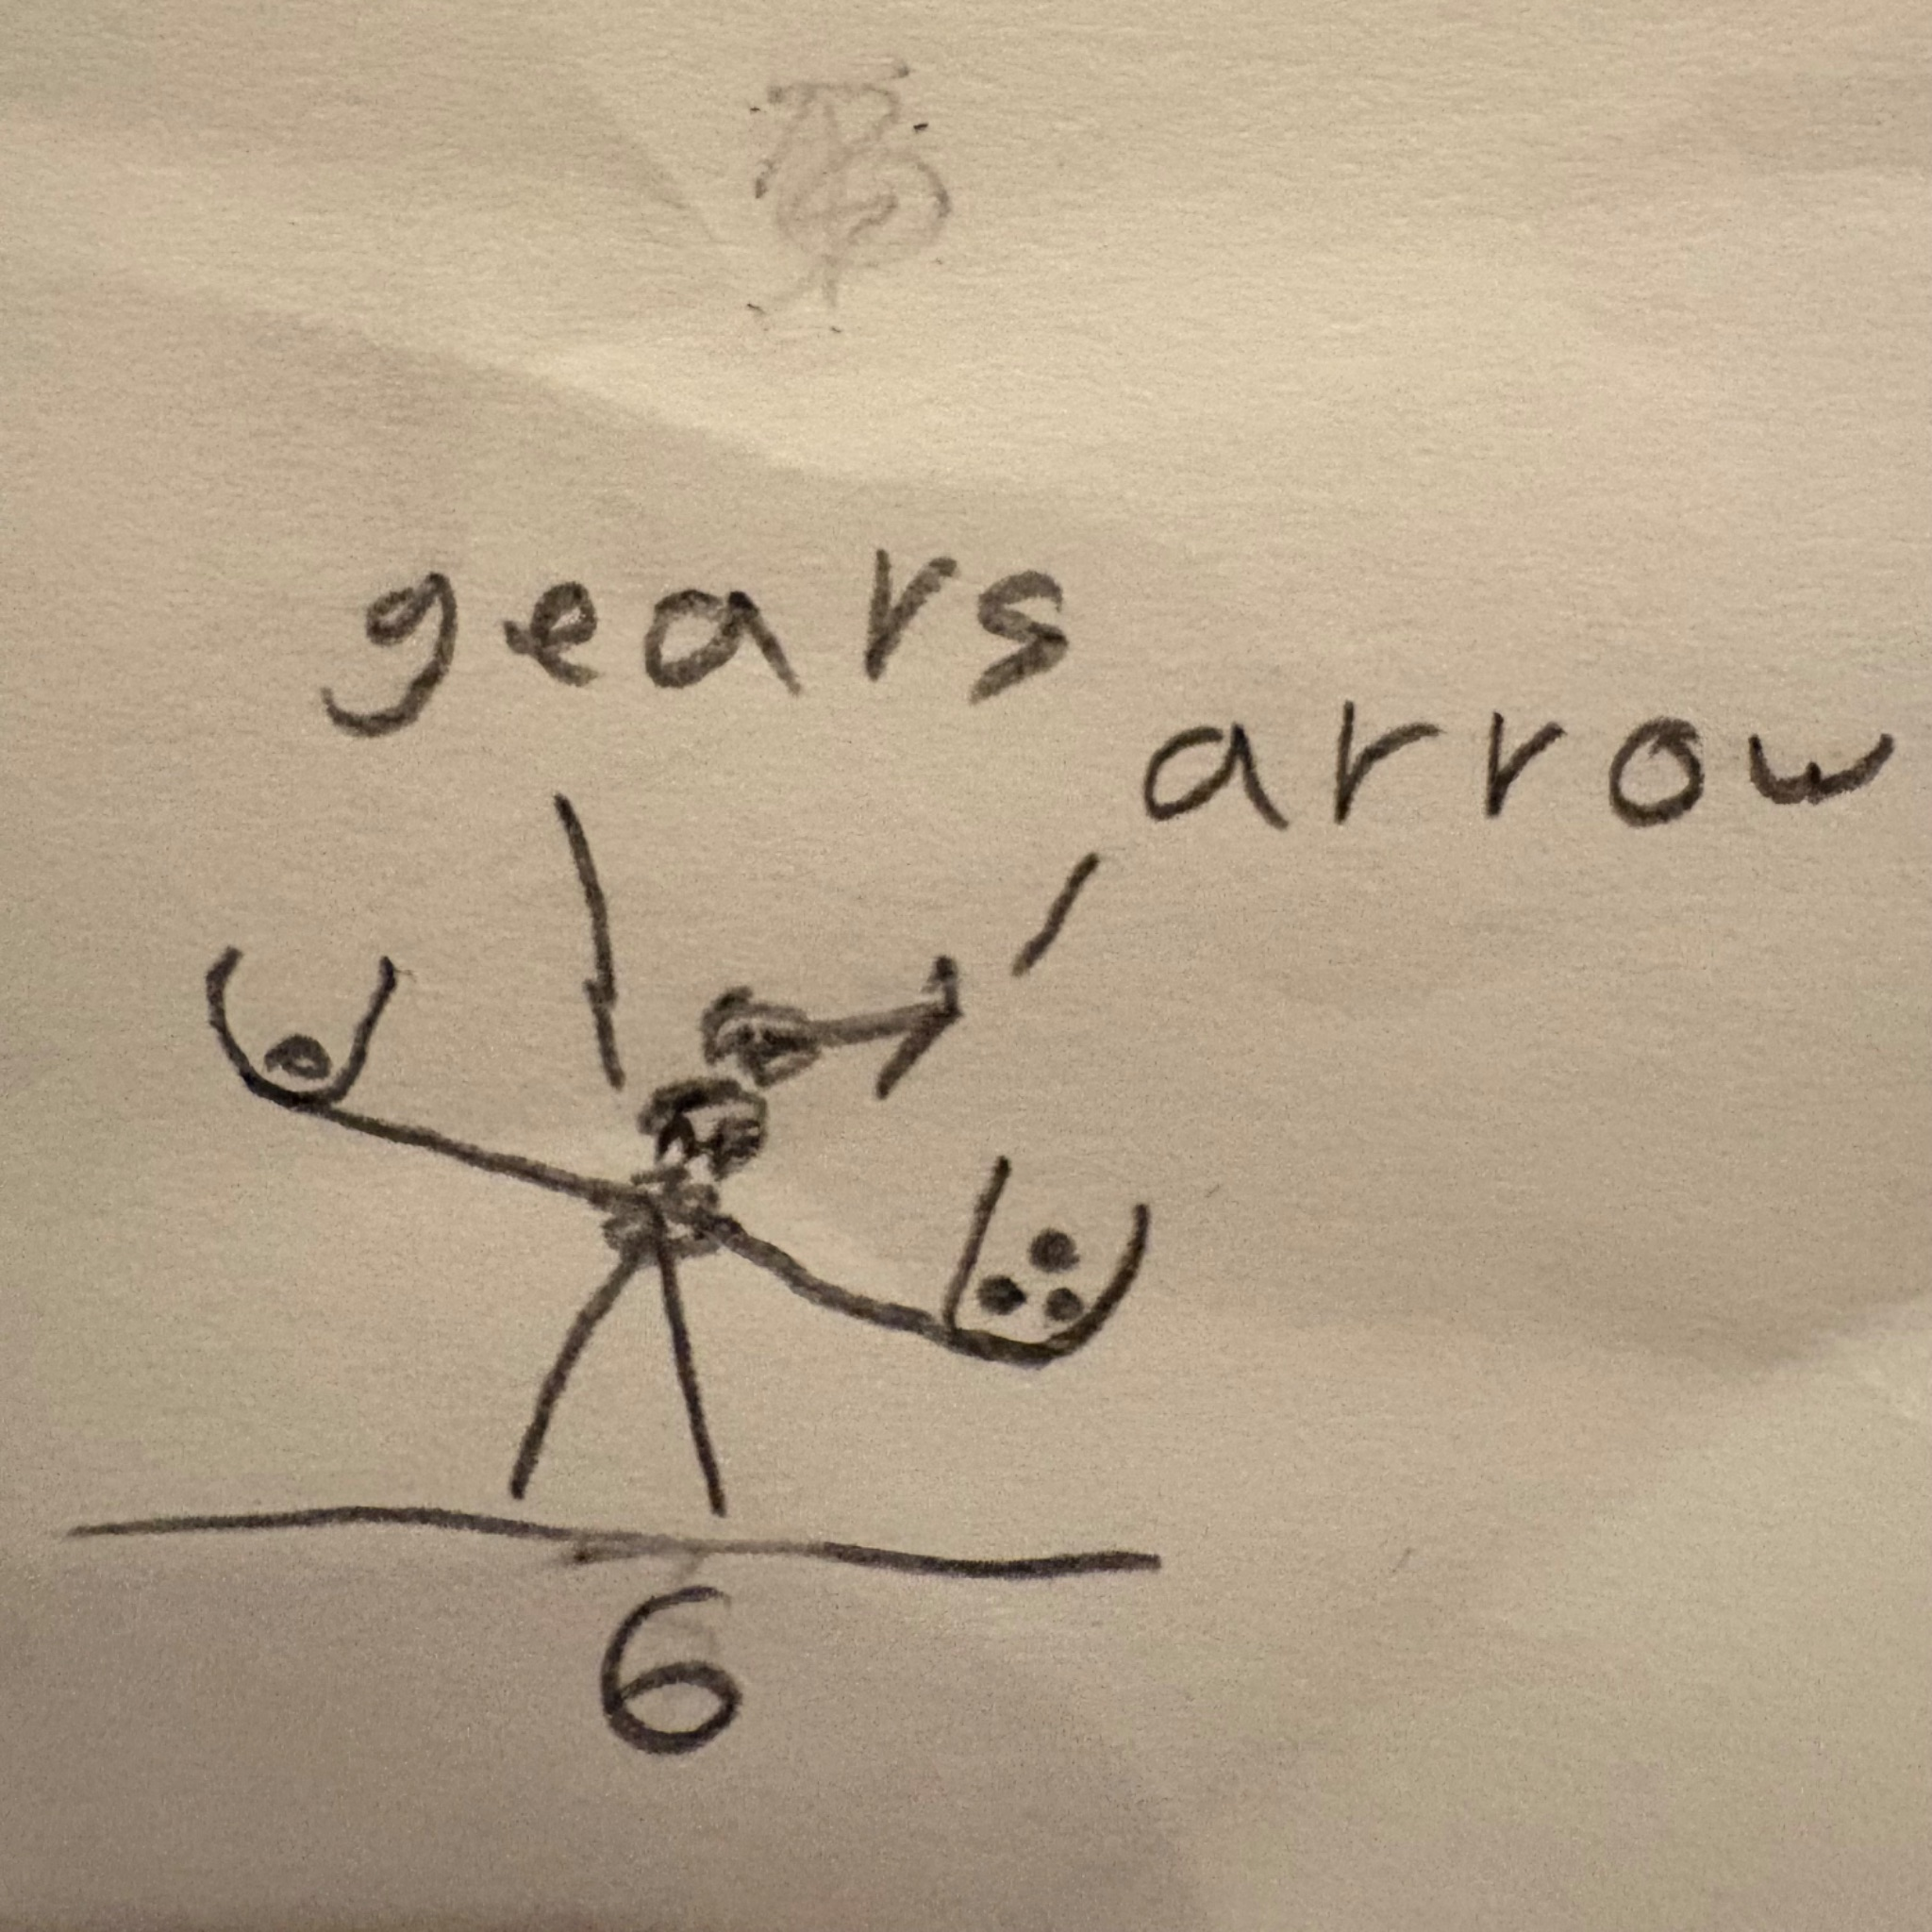 gears
arrow
6